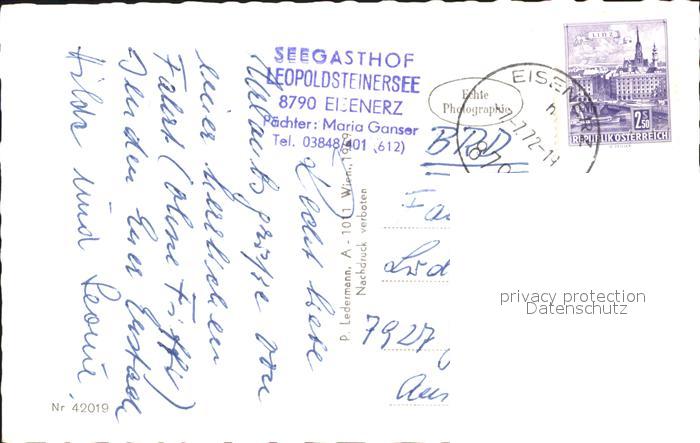 SEEGASTHOF
LEOPOLDSTEINERSEE
8790 EISENERZ
Pächter: Maria Ganser
Tel. 03848/401 612)
Echte
Photographie
LINZ
2.50
REPUBLIK ÖSTERREICH
EISENERZ
-7.72-1
870
BRD
7927
P. Ledermann, A - 1011 Wien, 1979
Nachdruck verboten
Recht liebe
Urlaubsgrüße von
einer herrlichen
Fahrt (ohne Fiffi)
senden Euch
Hilde und Leonie.
privacy protection
Datenschutz
Nr 42019